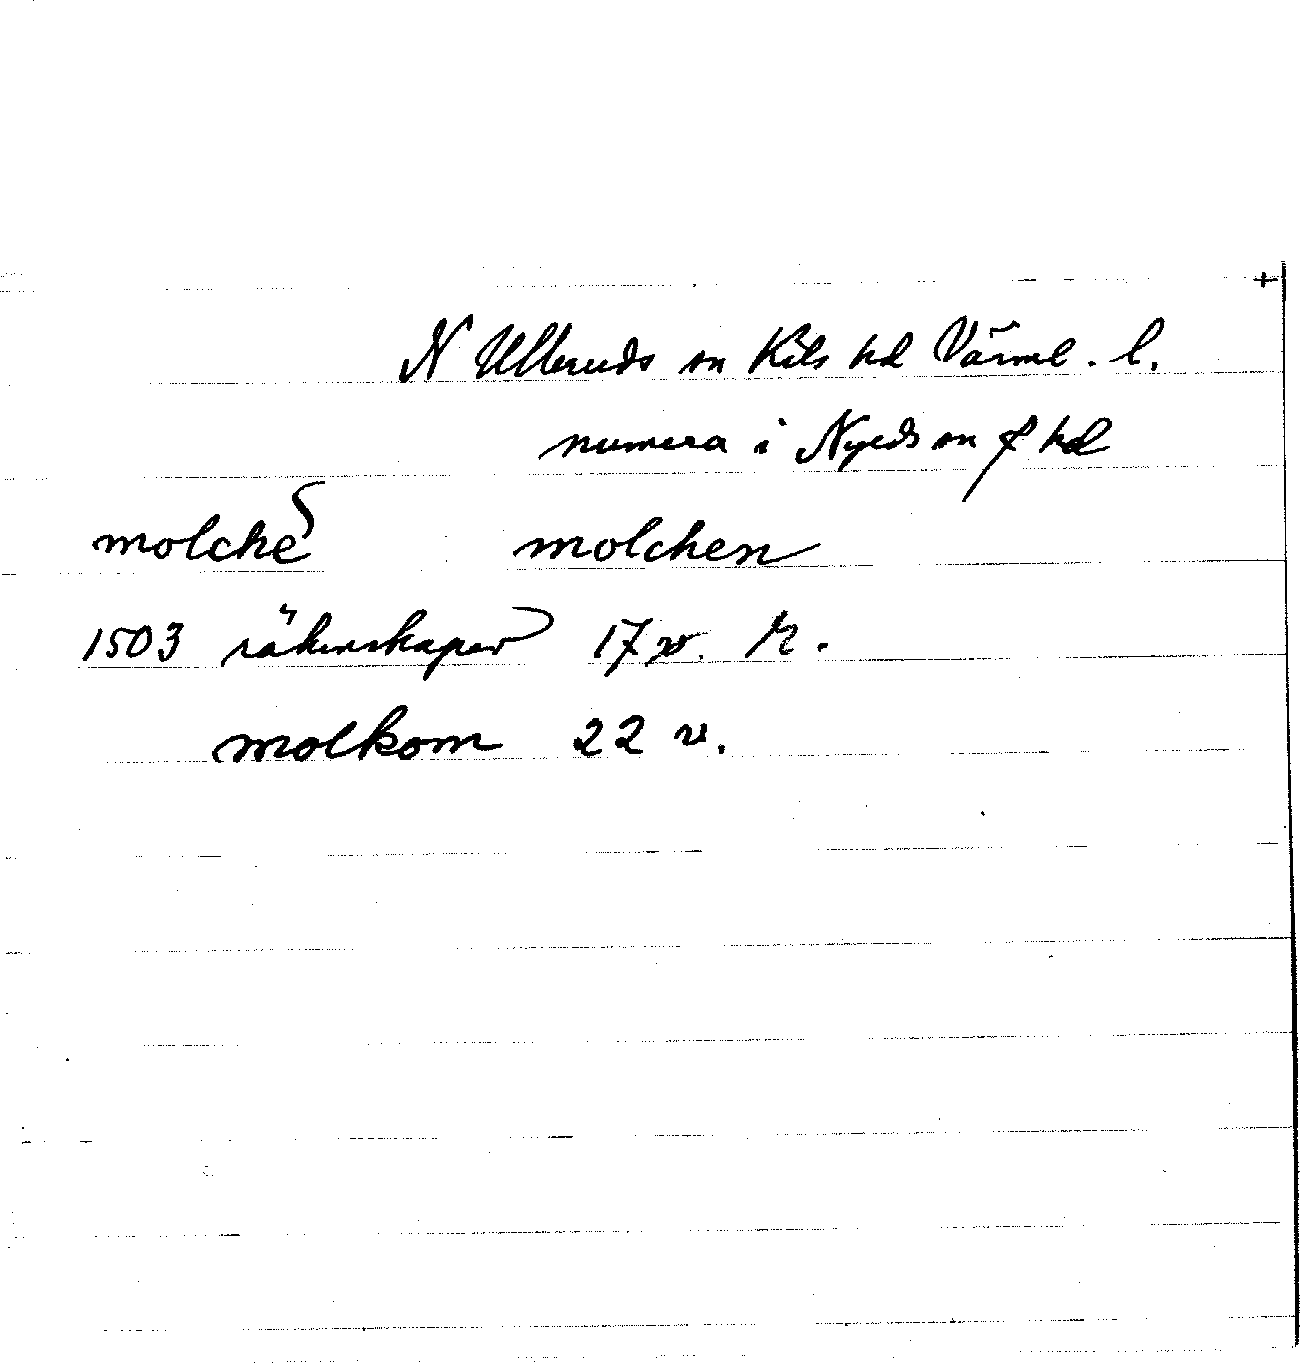 N Ulleruds sn Kils hd Värml. l.
numera i Nyeds sn o hd
molche molchen
1503 räkenskaper 17 v. R.
molkom 22 v.